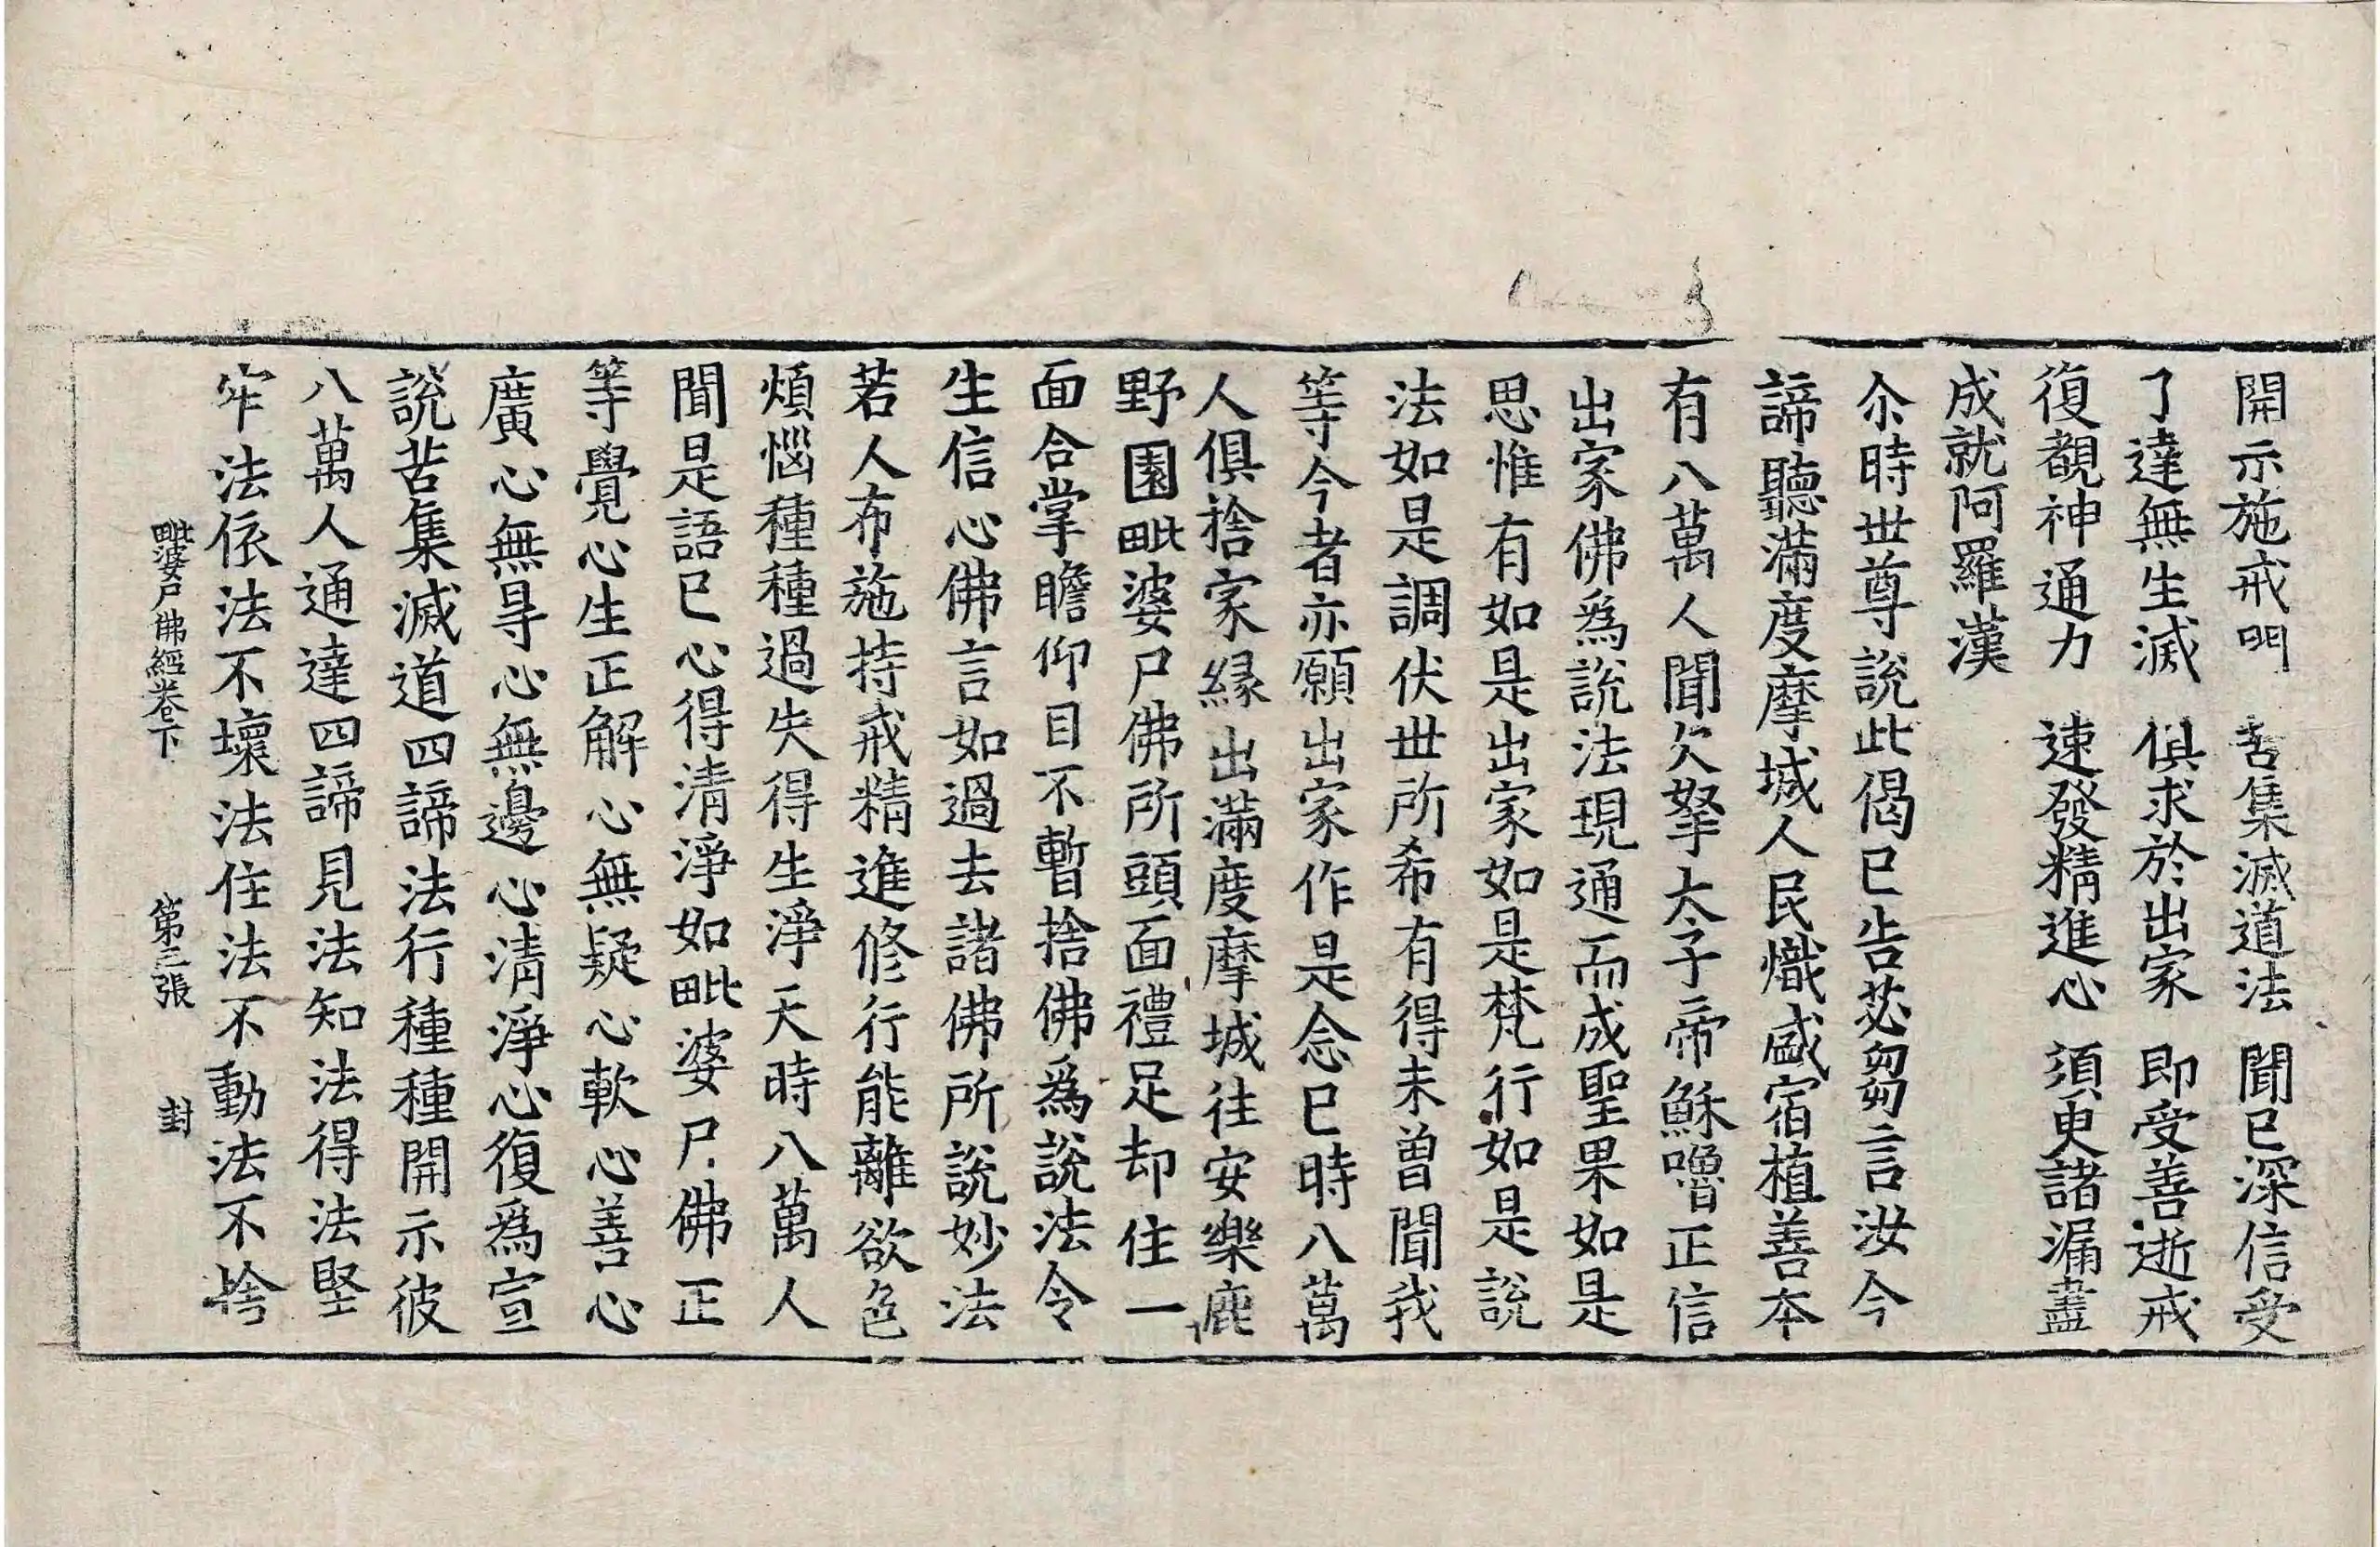 開示施戒門　苦集滅道法　聞已深信受
了達無生滅　俱求於出家　即受善逝戒
復覩神通力　速發精進心　須臾諸漏盡
成就阿羅漢
尒時世尊說此偈已告苾芻言汝今
諦聽滿度摩城人民熾盛宿植善本
有八萬人聞欠拏太子帝穌嚕正信
出家佛爲說法現通而成聖果如是
思惟有如是出家如是梵行如是說
法如是調伏世所希有得未曾聞我
等今者亦願出家作是念已時八萬
人俱捨家縁出滿度摩城往安樂鹿
野園毗婆尸佛所頭面禮足却住一
面合掌瞻仰目不暫捨佛爲說法令
生信心佛言如過去諸佛所說妙法
若人布施持戒精進修行能離欲色
煩惱種種過失得生淨天時八萬人
聞是語已心得清淨如毗婆尸佛正
等覺心生正解心無疑心軟心善心
廣心無㝵心無邊心清淨心復爲宣
說苦集滅道四諦法行種種開示彼
八萬人通達四諦見法知法得法堅
牢法依法不壞法住法不動法不捨
毗婆尸佛經卷下　第三張　封